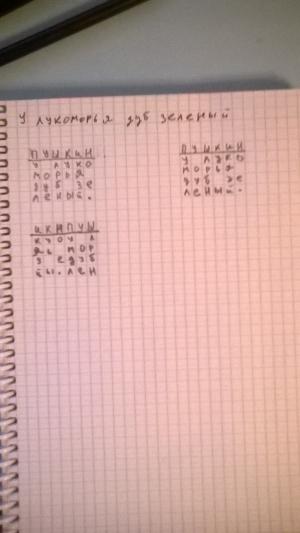 У лукоморья дуб зеленый
ПУШКИН
У ЛУКО
МОРЬЯ
ДУБ ЗЕ
ЛЕНЫЙ.
ПУШКИН
У ЛУКО
МОРЬЯ
ДУБ ЗЕ
ЛЕНЫЙ.
ИКНПУШ
КУОУ Л
ЯЬ МОР
З ЕДУБ
ЙЫ.ЛЕН